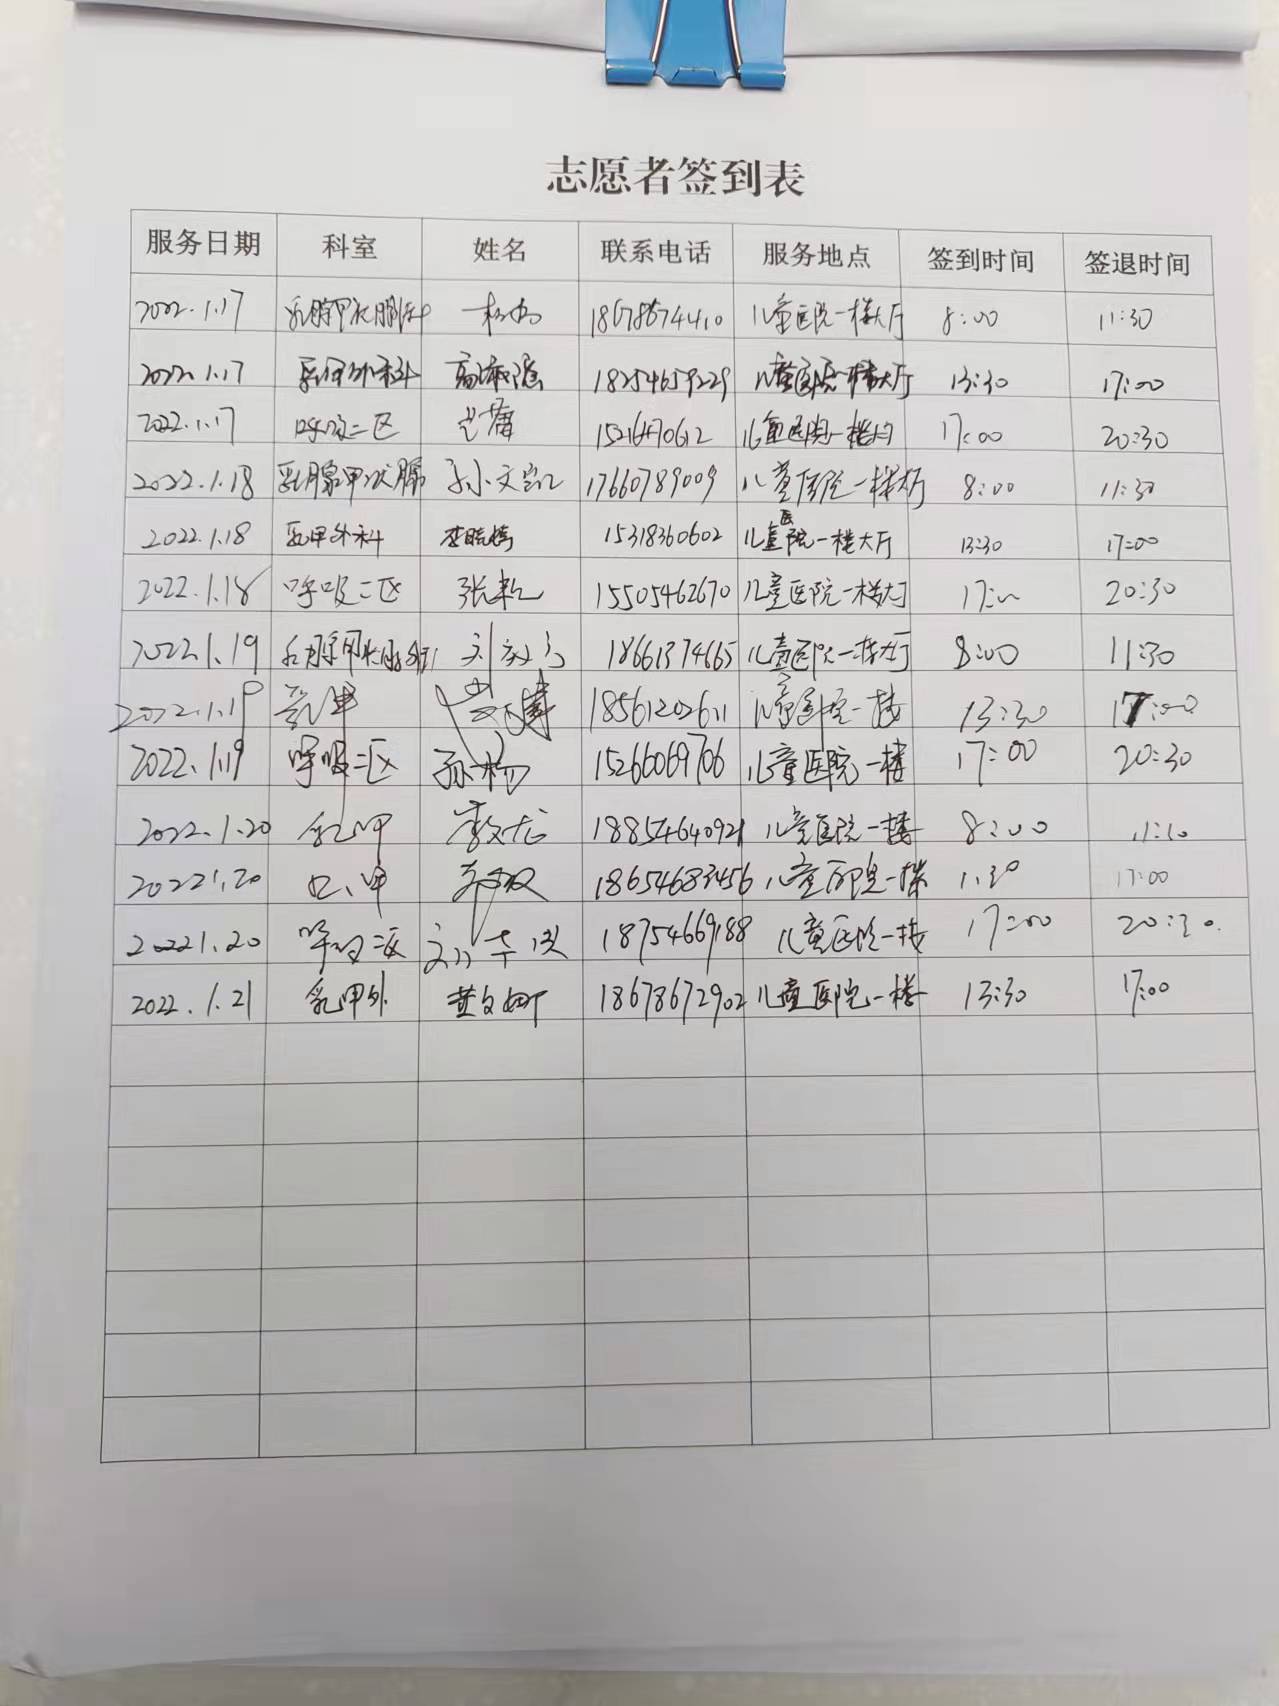 志愿者签到表
服务日期 科室 姓名 联系电话 服务地点 签到时间 签退时间
2022.1.17 乳腺甲状腺外科 杨杨 18678674410 儿童医院一楼大厅 8:00 11:30
2022.1.17 乳甲外科 18254659229 儿童医院一楼大厅 13:30 17:00
2022.1.17 呼吸二区 15216470612 儿童医院一楼大厅 17:00 20:30
2022.1.18 乳腺甲状腺 孙文凯 17660789009 儿童医院一楼大厅 8:00 11:30
2022.1.18 乳甲外科 李晓婷 15318360602 儿童医院一楼大厅 13:30 17:00
2022.1.18 呼吸二区 张 15505462670 儿童医院一楼大厅 17:00 20:30
2022.1.19 乳腺甲状腺外科 刘 18661374665 儿童医院一楼大厅 8:00 11:30
2022.1.19 乳甲 18561202611 儿童医院一楼 13:30 17:00
2022.1.19 呼吸二区 孙杨 15266069706 儿童医院一楼 17:00 20:30
2022.1.20 乳甲 李文龙 18854640921 儿童医院一楼 8:00 11:30
2022.1.20 乳甲 18654683456 儿童医院一楼 1:30 17:00
2022.1.20 呼吸二区 刘 18754669188 儿童医院一楼 17:00 20:30
2022.1.21 乳甲外 黄文娜 18678672902 儿童医院一楼 13:30 17:00